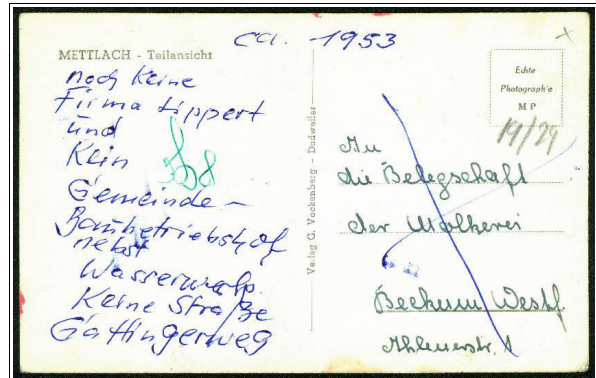 ca. 1953
METTLACH - Teilansicht
noch Keine
Firma Lippert
und
Kein
Gemeinde-
Baubetriebshof
nebst
Wasserwerk.
Keine Straße
Gattingerweg
Verlag G. Vockenberg - Dudweiler
Echte
Photographie
MP
19/29
An
die Belegschaft
der Molkerei
Beckum Westf
Ahlenerstr. 1